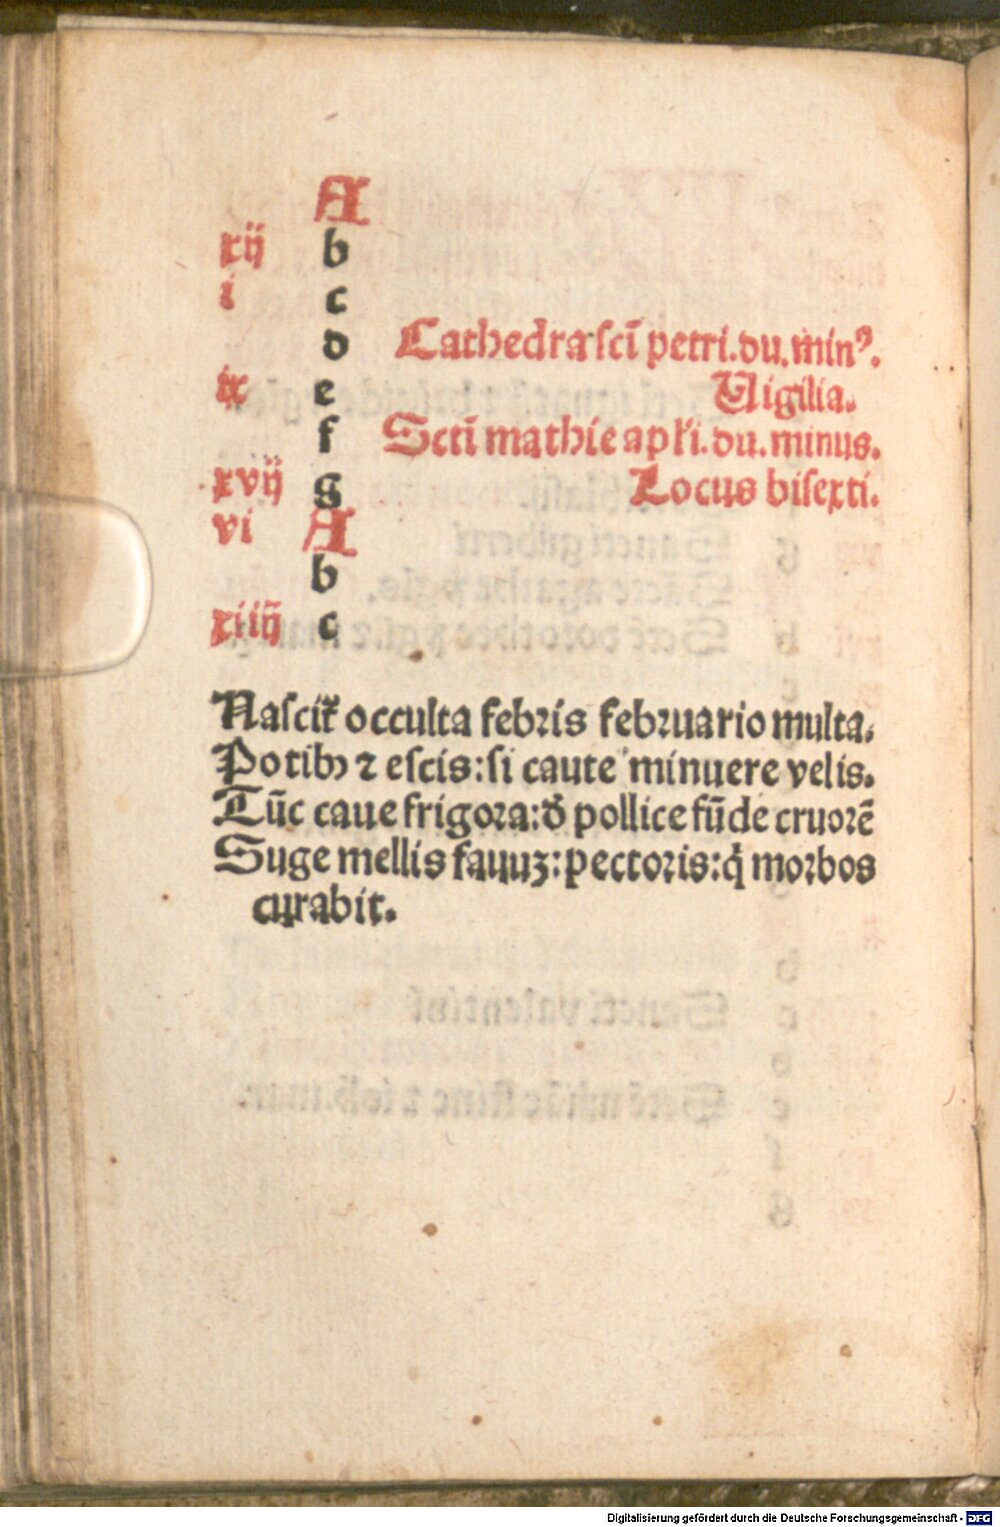 A
xij b
i c
d Cathedra scī petri. du. minꝰ.
ix e Vigilia.
f Scti mathie apłi. du. minus.
xvij g Locus bisexti.
vi A
b
xiiij c
Nascit᷑ occulta febris februario multa.
Potibꝫ ⁊ escis: si caute minuere velis.
Tūc caue frigora: đ pollice fūde cruorē
Suge mellis fauuꝫ: pectoris: q̄ morbos
curabit.
Digitalisierung gefördert durch die Deutsche Forschungsgemeinschaft - DFG